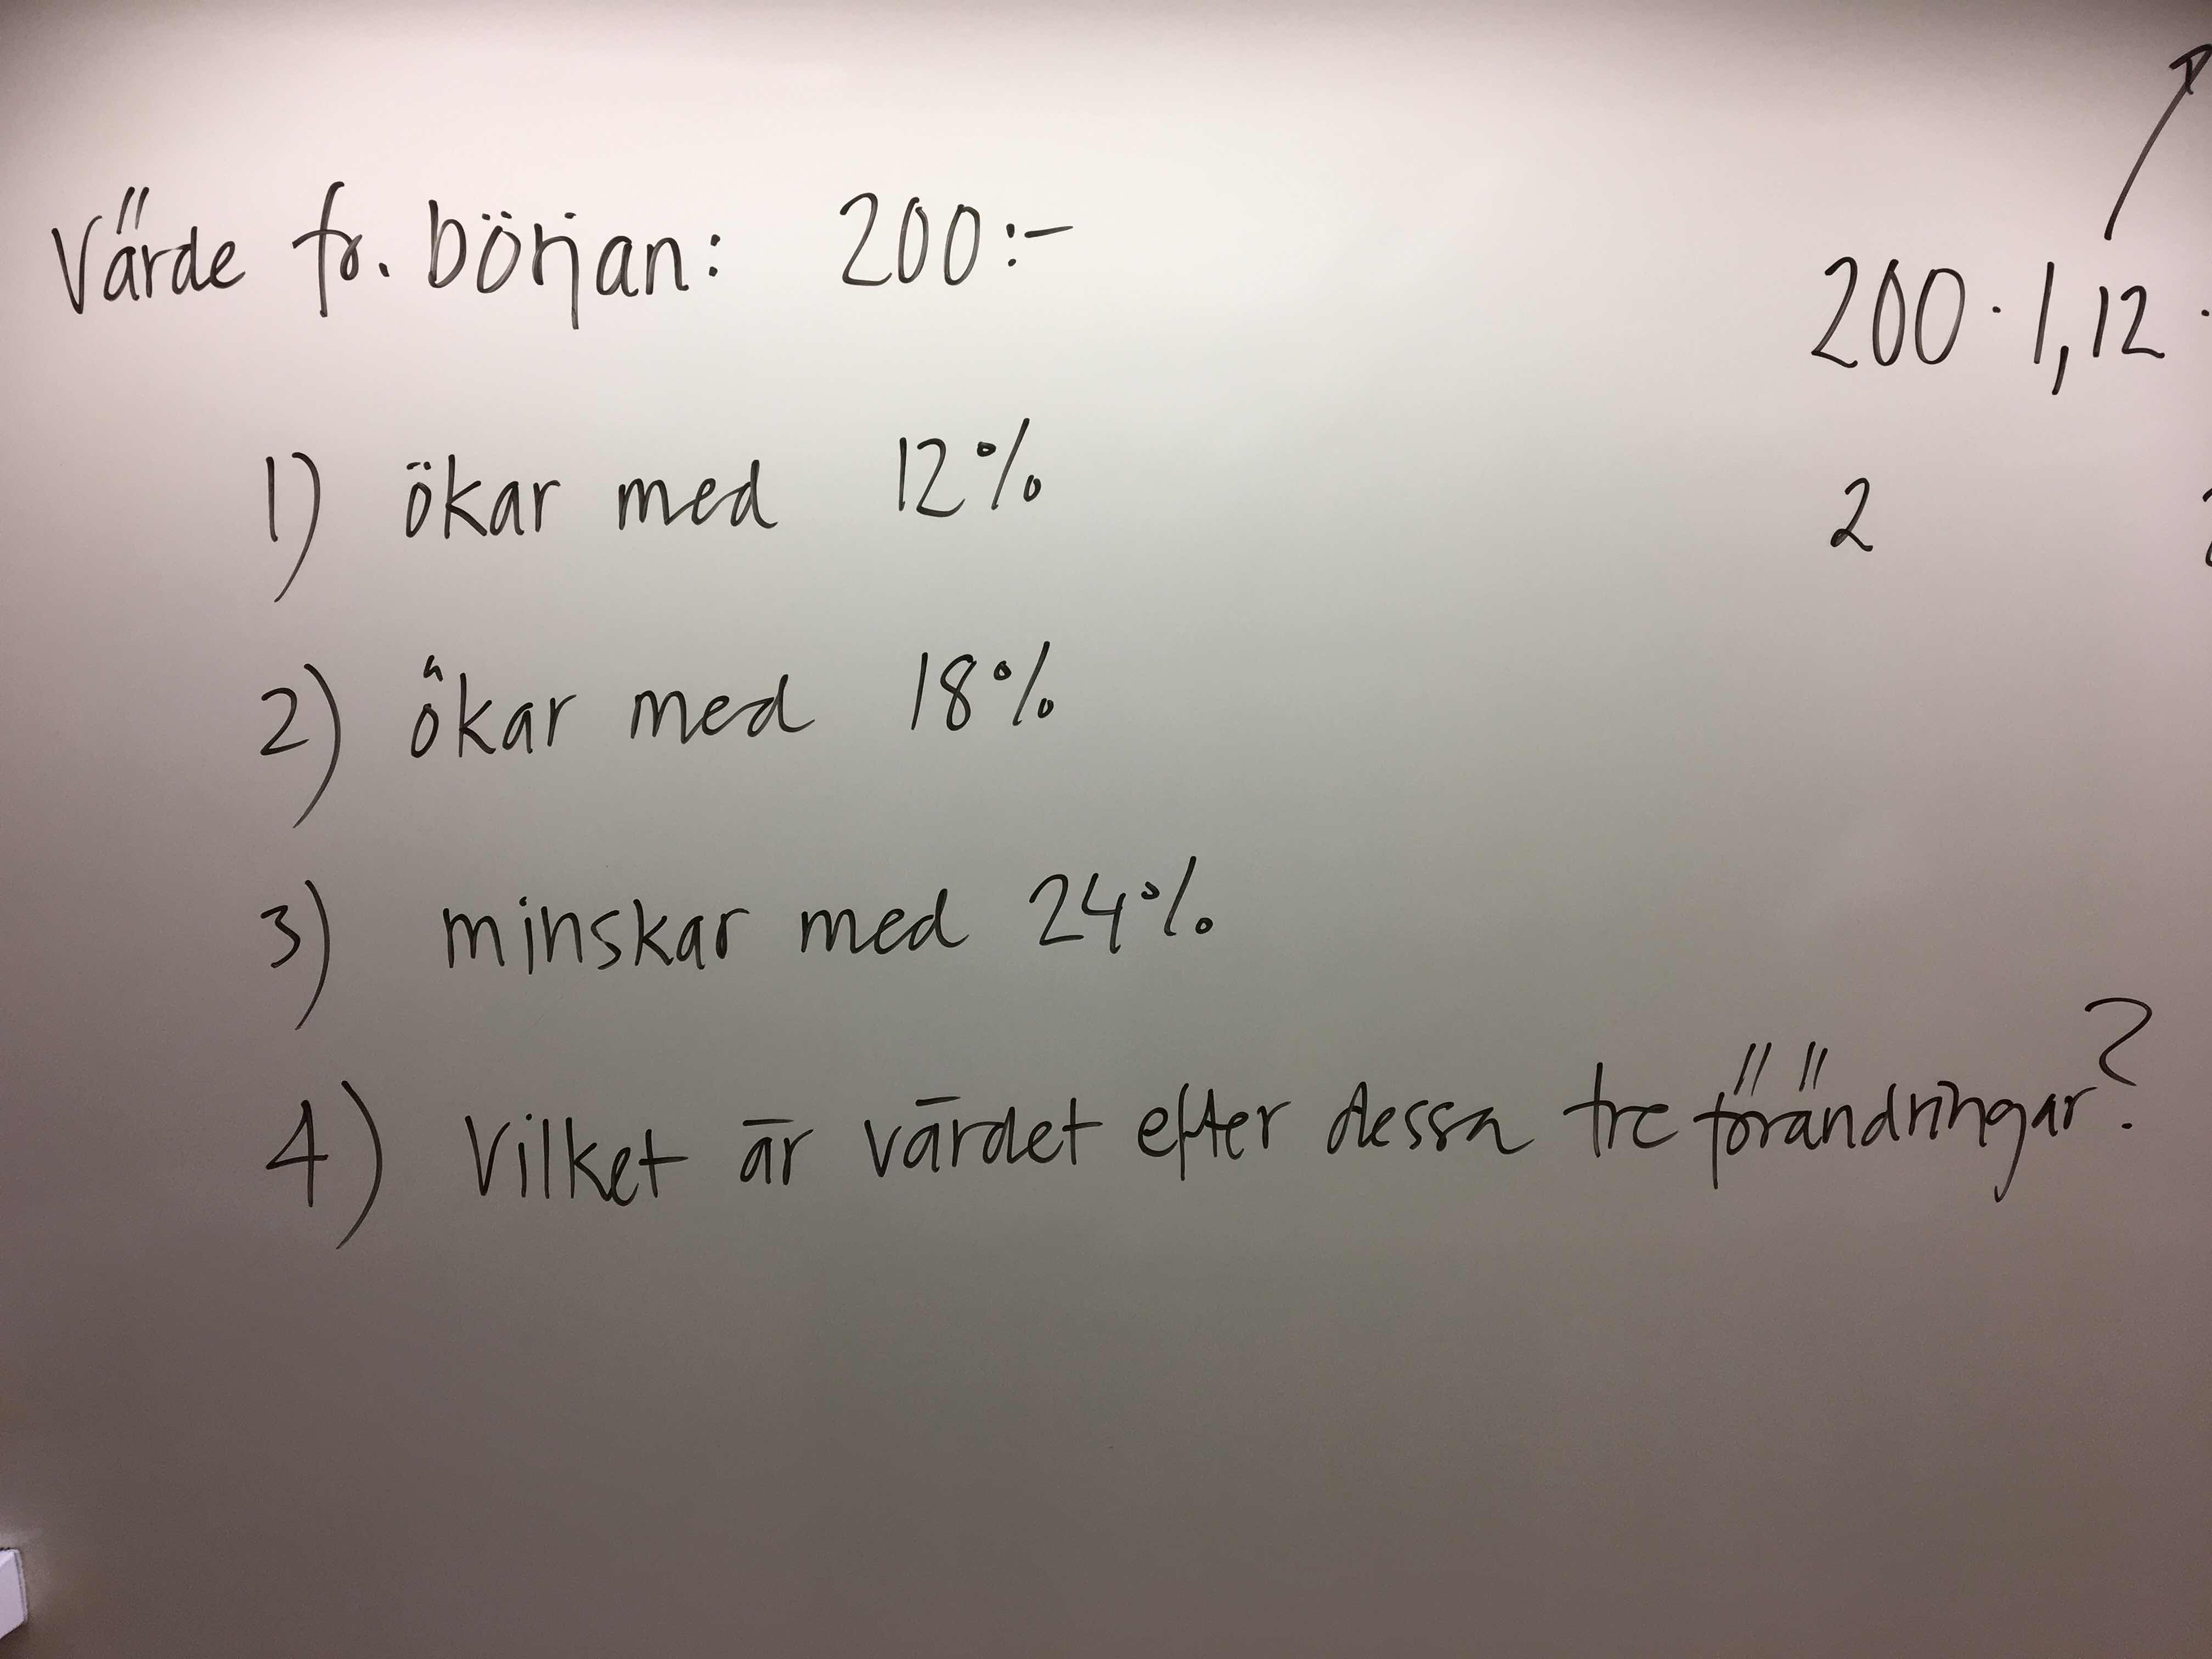 Värde fr. början: 200:-
200 · 1,12 ·
1) ökar med 12%
2
2) ökar med 18%
3) minskar med 24%
4) Vilket är värdet efter dessa tre förändringar?